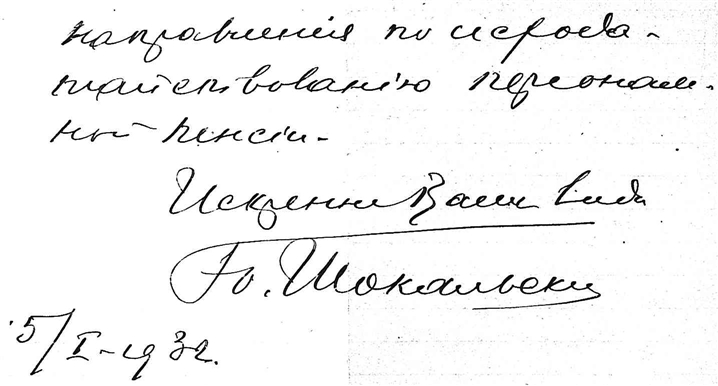 направленія по исхода-
тайствованію персональ-
ной пенсіи.
Искренно Ваш
Ю. Шокальски
5/I-1932.